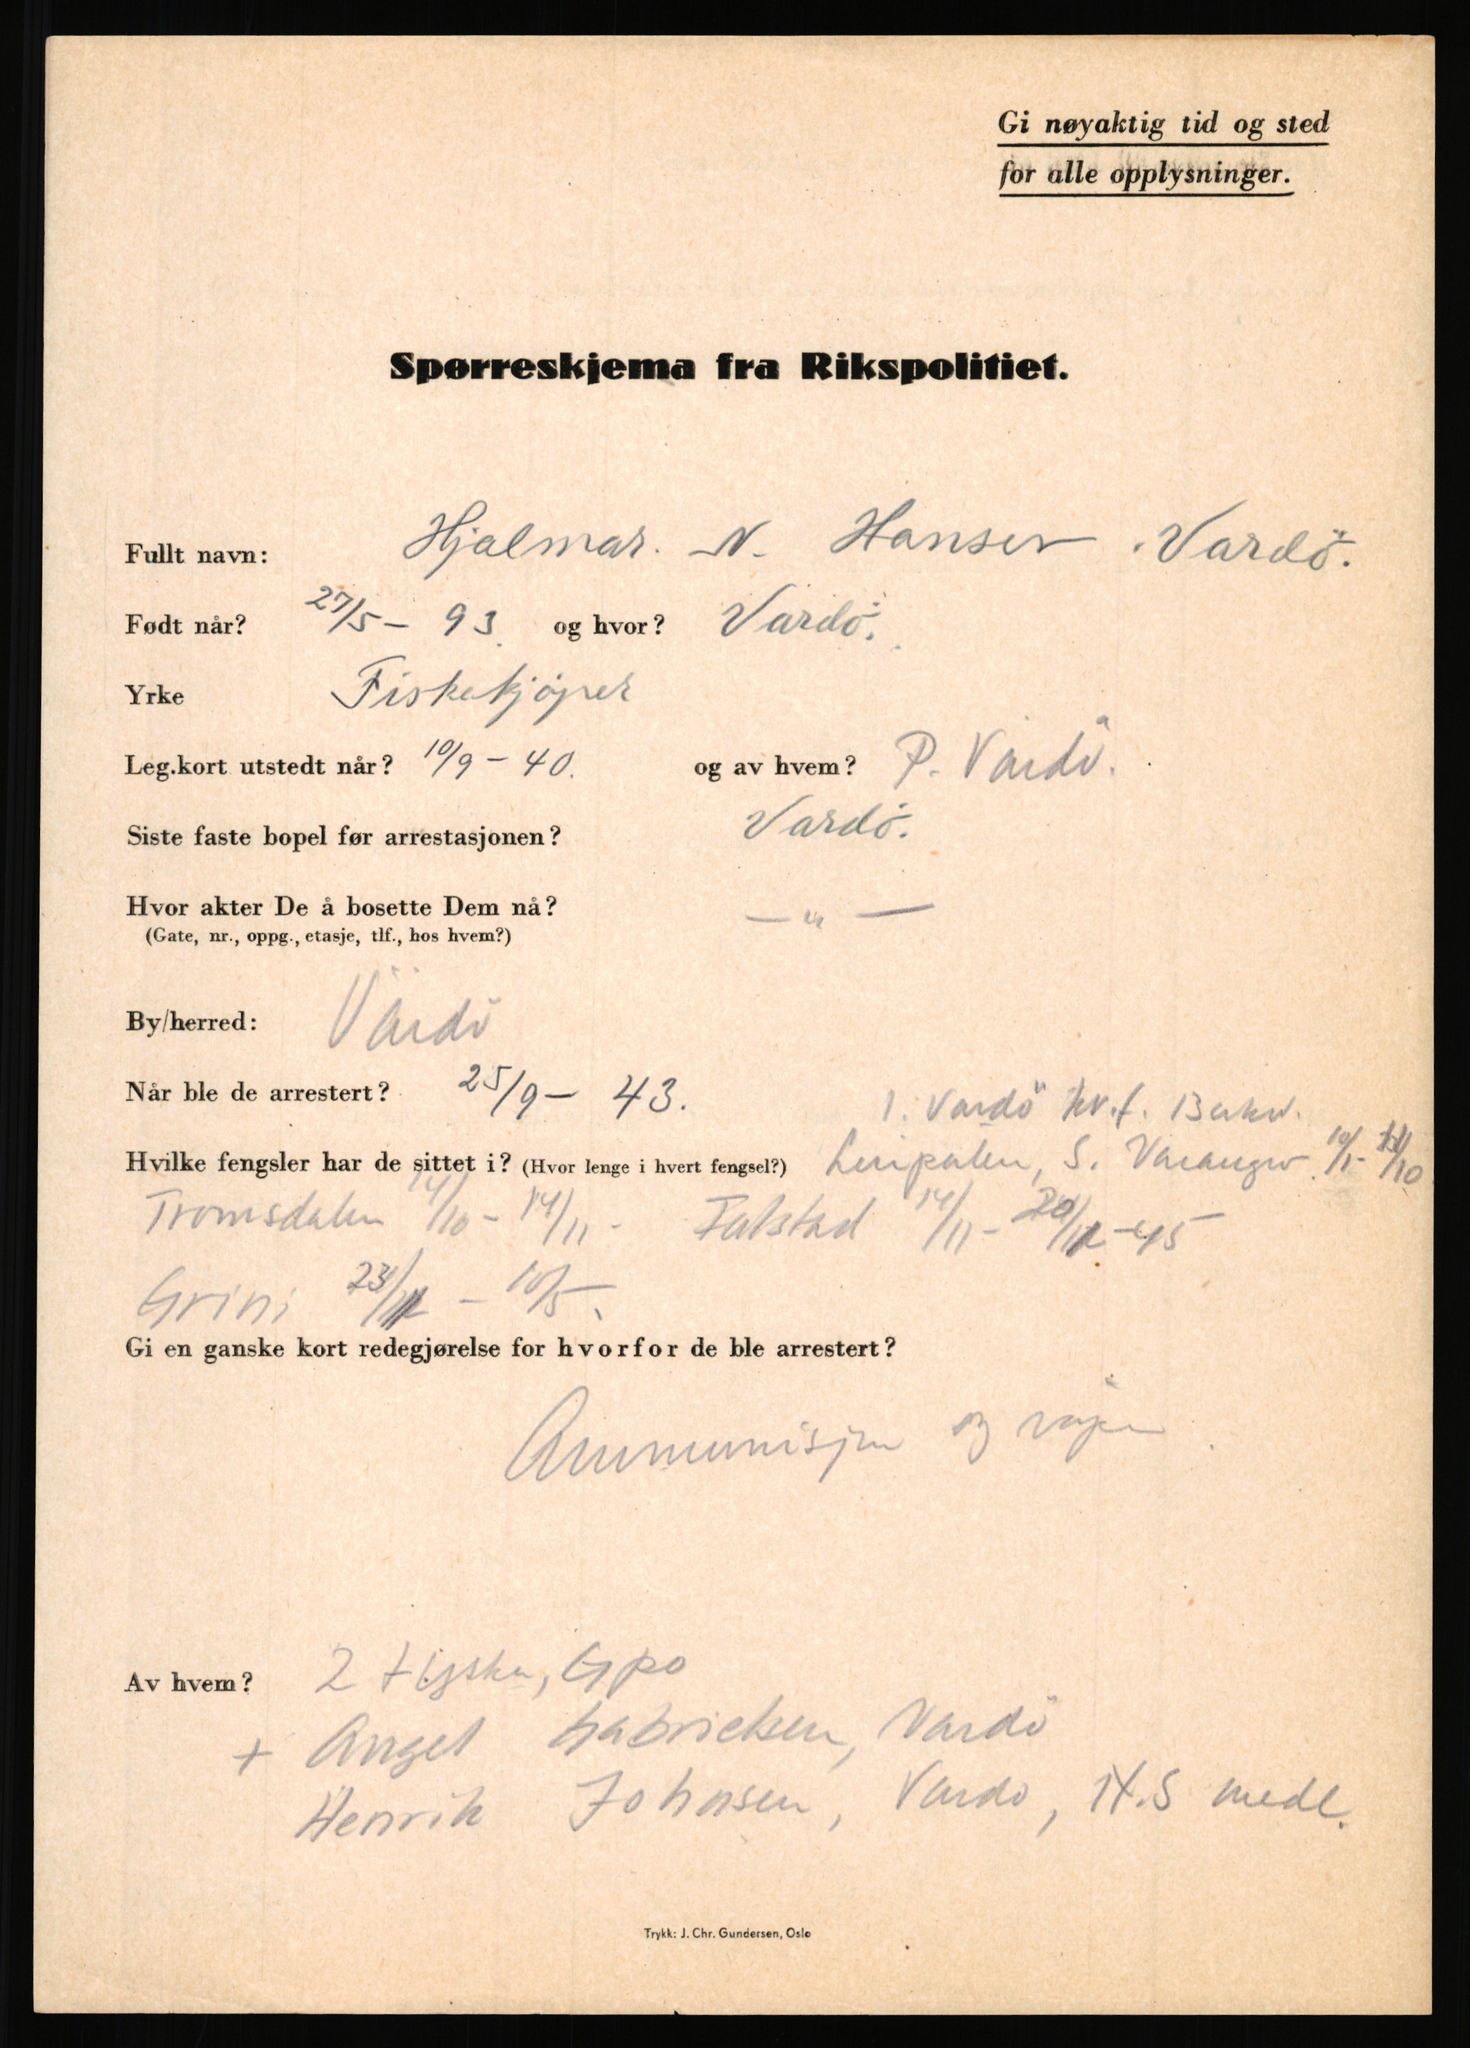 Gi nøyaktig tid og sted
for alle opplysninger.
Spørreskjema fra Rikspolitiet.
Fullt navn: Hjalmar. N. Hansen. Vardö.
Født når? 27/5 - 93. og hvor? Vardö.
Yrke Fiskekjøper
Leg.kort utstedt når? 10/9 - 40. og av hvem? P. Vardö.
Siste faste bopel før arrestasjonen? Vardö.
Hvor akter De å bosette Dem nå? — " —
(Gate, nr., oppg., etasje, tlf., hos hvem?)
By/herred: Vardö
Når ble de arrestert? 25/9 - 43.
1. Vardö
Hvilke fengsler har de sittet i? (Hvor lenge i hvert fengsel?) S. Varanger
Tromsdalen 14/10 - 14/11 - Falstad 14/11 - 45
Grini - 10/5.
Gi en ganske kort redegjørelse for hvorfor de ble arrestert?
Ammunisjon og våpen
Av hvem? 2 tyskere, Gpo
+ Angel Gabrielsen, Vardö
Henrik Johnsen, Vardö, N.S medl.
Trykk: J. Chr. Gundersen, Oslo